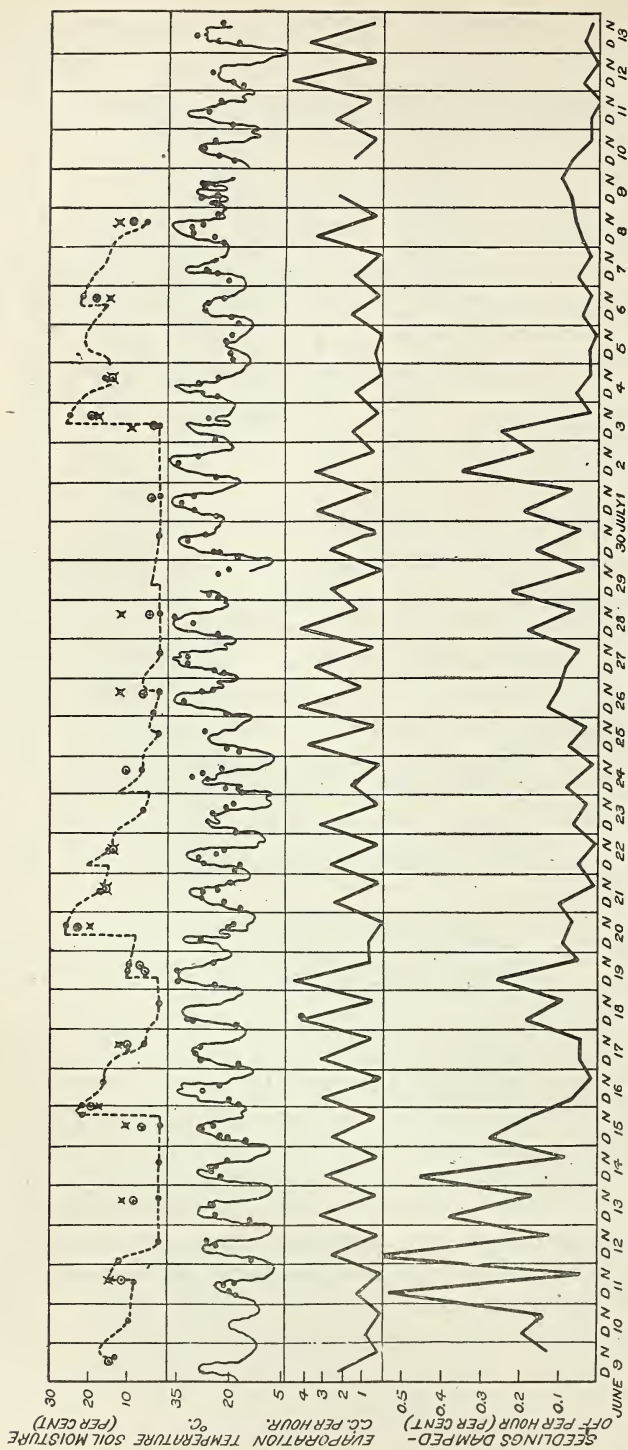 SOIL MOISTURE
(PER CENT)
30
20
10
TEMPERATURE
°C.
35
20
5
EVAPORATION
C.C. PER HOUR.
4
3
2
1
SEEDLINGS DAMPED-
OFF PER HOUR (PER CENT)
0.5
0.4
0.3
0.2
0.1
D N D N D N D N D N D N D N D N D N D N D N D N D N D N D N D N D N D N D N D N D N D N D N D N D N D N D N D N D N D N D N D N D N D N D N
JUNE 9 10 11 12 13 14 15 16 17 18 19 20 21 22 23 24 25 26 27 28 29 30 JULY 1 2 3 4 5 6 7 8 9 10 11 12 13